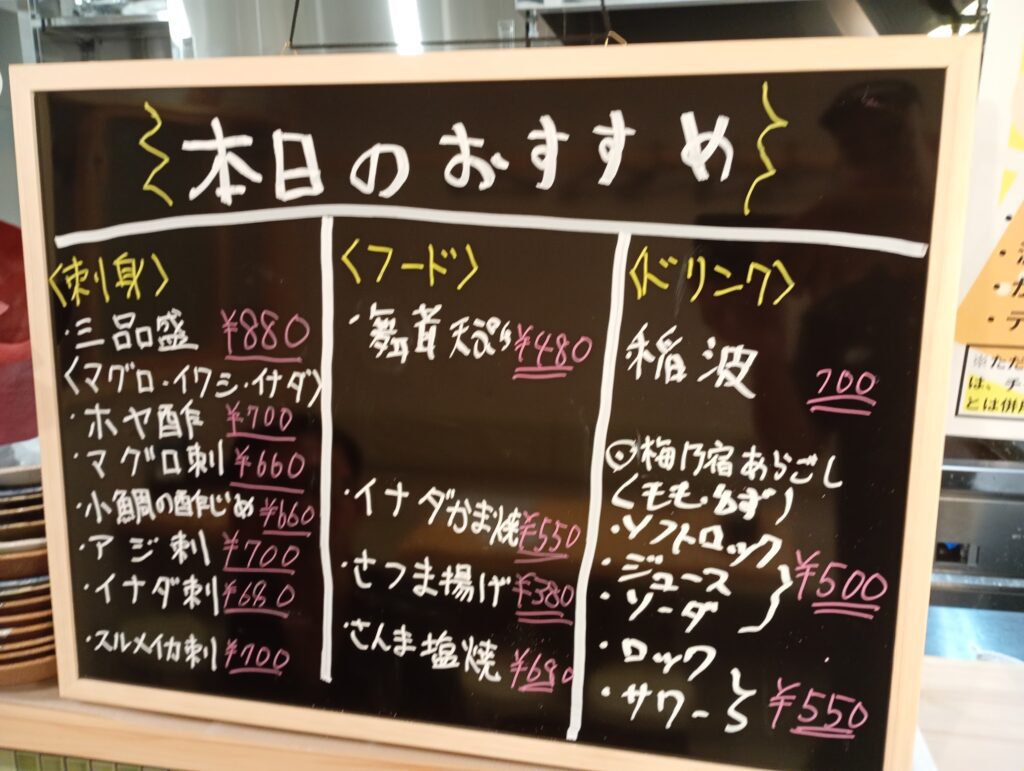 本日のおすすめ
〈刺身〉
・三品盛 ¥880
〈マグロ・イワシ・イナダ〉
・ホヤ酢 ¥700
・マグロ刺 ¥660
・小鯛の酢じめ ¥660
・アジ刺 ¥700
・イナダ刺 ¥680
・スルメイカ刺 ¥700
〈フード〉
・舞茸天ぷら ¥480
・イナダかま焼 ¥550
・さつま揚げ ¥380
・さんま塩焼 ¥680
〈ドリンク〉
稲波 700
梅乃宿あらごし
〈もも・ゆず〉
・ソフトロック
・ジュース
・ソーダ
¥500
・ロック
・サワー
¥550
※ただ
は、チ
とは併用